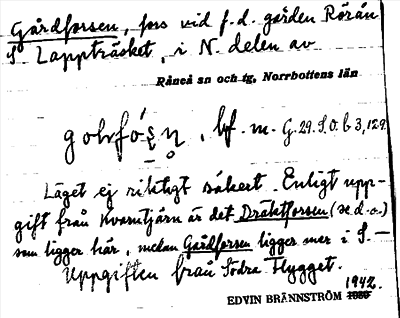 Gårdforsen, fors vid f.d. gården Rörån
S. Lappträsket, i N. delen av
Råneå sn och tg, Norrbottens län
bf. m. G. 29. S.O. b 3, 129.
Läget ej riktigt säkert. Enligt upp-
gift från Kvarntjärn är det Dräktforsen (se d.o.)
som ligger här, medan Gårdforsen ligger mer i S. —
Uppgiften från Södra Flygget.
1942.
EDVIN BRÄNNSTRÖM